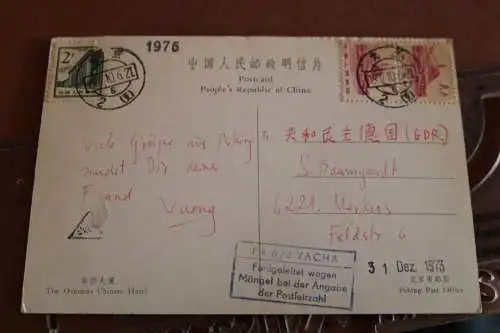 1976
中国人民邮政明信片
Postcard
People's Republic of China
Viele Grüße aus Peking
sendet Dir deine
Freund
Vuong
To
共和民主德国(GDR)
S. Baumgardt
6221 Merkers
Feldstr 6
VACHA
Fehlgeleitet wegen
Mängel bei der Angabe
der Postleitzahl
31 Dez. 1973
华侨大厦
The Overseas Chinese Hotel
北京市邮局
Peking Post Office